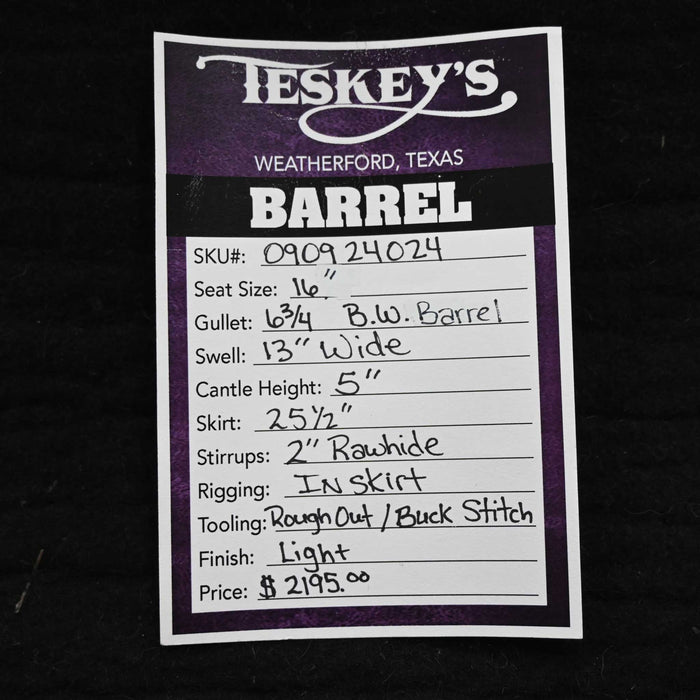 TESKEY'S
WEATHERFORD, TEXAS
BARREL
SKU#: 090924024
Seat Size: 16"
Gullet: 6 3/4 B.W. Barrel
Swell: 13" Wide
Cantle Height: 5"
Skirt: 25 1/2"
Stirrups: 2" Rawhide
Rigging: IN SKirt
Tooling: Rough Out / Buck Stitch
Finish: Light
Price: $ 2195.00